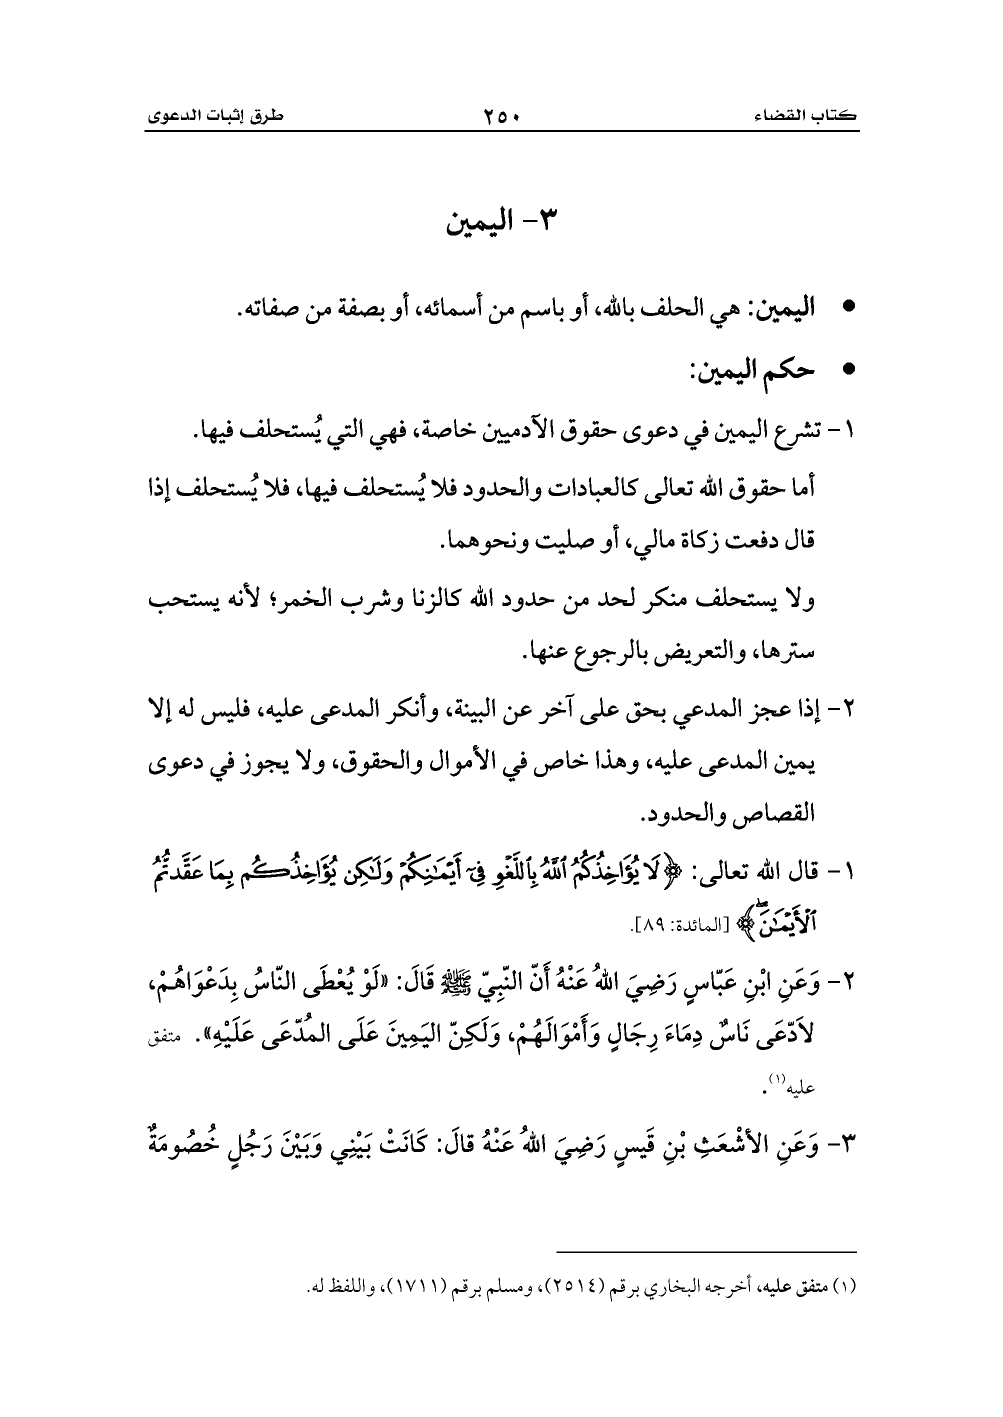 كتاب القضاء ٢٥٠ طرق إثبات الدعوى
٣- اليمين
• اليمين: هي الحلف بالله، أو باسم من أسمائه، أو بصفة من صفاته.
• حكم اليمين:
١- تشرع اليمين في دعوى حقوق الآدميين خاصة، فهي التي يُستحلف فيها.
أما حقوق الله تعالى كالعبادات والحدود فلا يُستحلف فيها، فلا يُستحلف إذا
قال دفعت زكاة مالي، أو صليت ونحوهما.
ولا يستحلف منكر لحد من حدود الله كالزنا وشرب الخمر؛ لأنه يستحب
سترها، والتعريض بالرجوع عنها.
٢- إذا عجز المدعي بحق على آخر عن البينة، وأنكر المدعى عليه، فليس له إلا
يمين المدعى عليه، وهذا خاص في الأموال والحقوق، ولا يجوز في دعوى
القصاص والحدود.
١- قال الله تعالى: ﴿لَا يُؤَاخِذُكُمُ ٱللَّهُ بِٱللَّغْوِ فِىٓ أَيْمَٰنِكُمْ وَلَٰكِن يُؤَاخِذُكُم بِمَا عَقَّدتُّمُ
ٱلْأَيْمَٰنَۖ﴾ [المائدة: ٨٩].
٢- وَعَنِ ابْنِ عَبّاسٍ رَضِيَ اللهُ عَنْهُ أَنّ النّبِيّ ﷺ قَالَ: «لَوْ يُعْطَى النّاسُ بِدَعْوَاهُمْ،
لاَدّعَى نَاسٌ دِمَاءَ رِجَالٍ وَأَمْوَالَهُمْ، وَلَكِنّ اليَمِينَ عَلَى المُدّعَى عَلَيْهِ». متفق
عليه(١).
٣- وَعَنِ الأشْعَثِ بْنِ قَيسٍ رَضِيَ اللهُ عَنْهُ قالَ: كَانَتْ بَيْنِي وَبَيْنَ رَجُلٍ خُصُومَةٌ
(١) متفق عليه، أخرجه البخاري برقم (٢٥١٤)، ومسلم برقم (١٧١١)، واللفظ له.